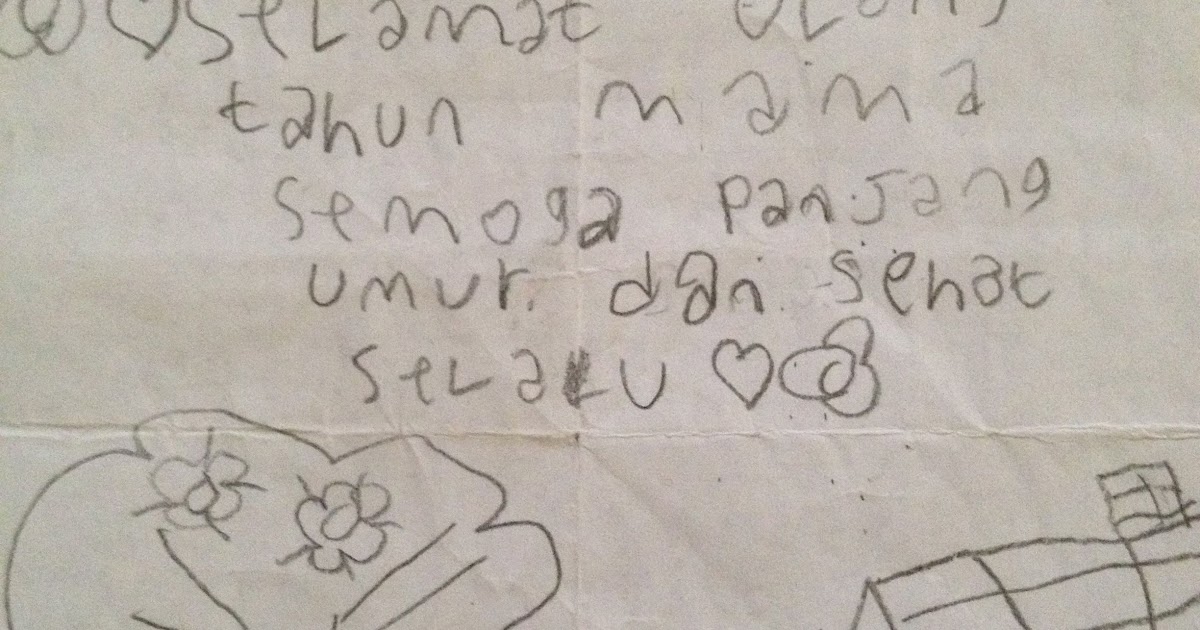 SeLamat ULang
tahun mama
Semoga panjang
umur. dan Sehat
SeLaLu